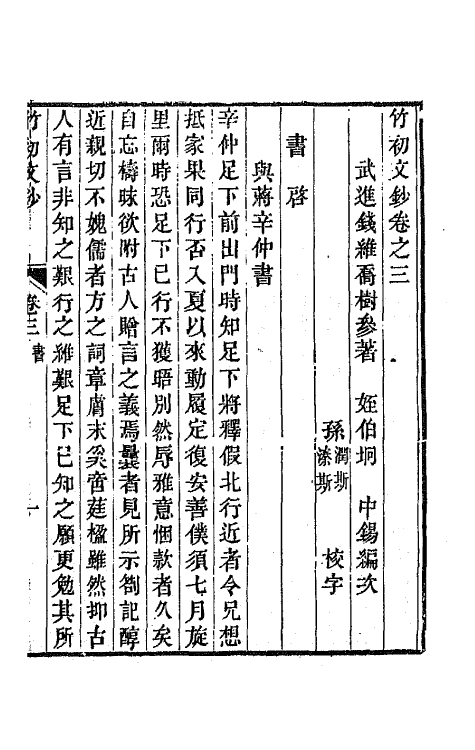 竹初文鈔卷之三
武進錢維喬樹參著　姪伯坰　中錫編次
孫潤斯滌斯　校字
書啓
與蔣辛仲書
辛仲足下前出門時知足下將釋假北行近者令兄想
抵家果同行否入夏以來動履定復安善僕須七月旋
里爾時恐足下已行不獲晤別然辱雅意悃款者久矣
自忘檮昧欲附古人贈言之義焉曩者見所示劄記醇
近親切不媿儒者方之詞章膚末奚啻莛楹雖然抑古
人有言非知之艱行之維艱足下已知之願更勉其所
竹初文鈔　卷三　書　一